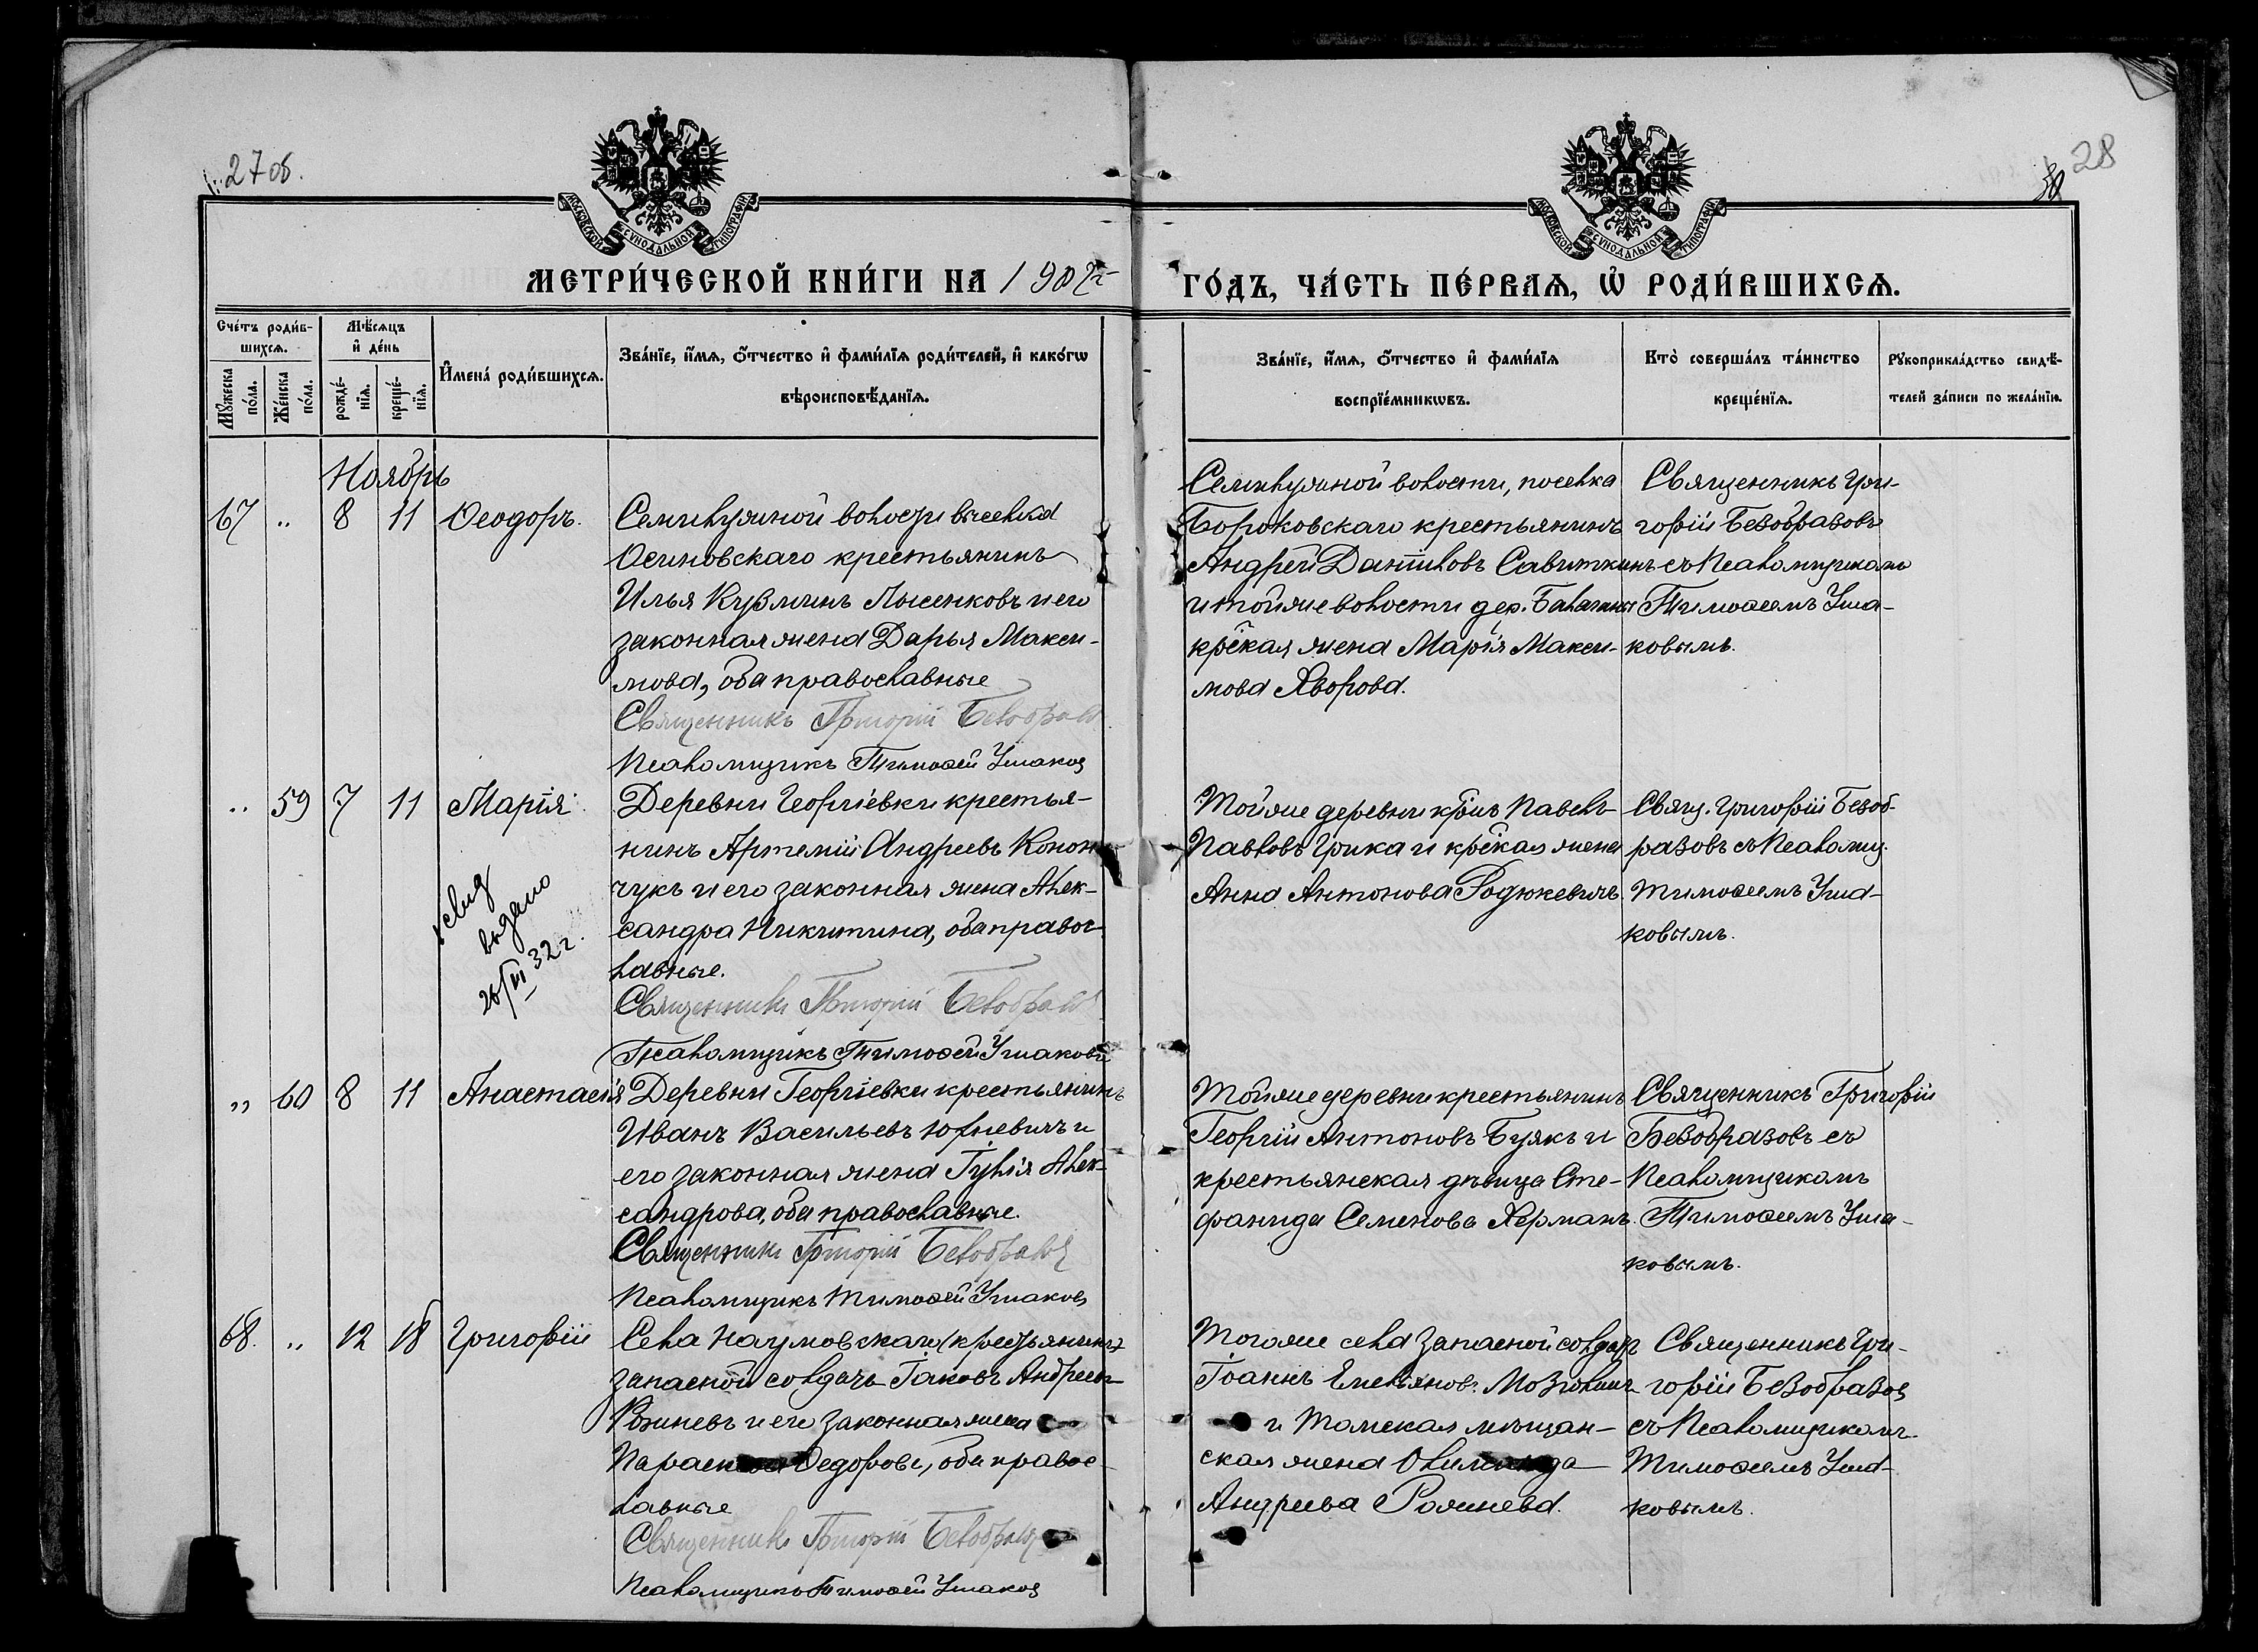 27 об.
28
МОСКОВСКОЙ СѴНОДАЛЬНОЙ ТИПОГРАФІИ
МОСКОВСКОЙ СѴНОДАЛЬНОЙ ТИПОГРАФІИ
МЕТРИ́ЧЕСКОЙ КНИ́ГИ НА 1902й
ГО́ДЪ, ЧА́СТЬ ПЕ́РВАѦ, Ѡ҆ РОДИ́ВШИХСѦ.
Сче́тъ роди́в-
шихсѧ.
Мꙋ́жеска
по́ла.
Же́нска
по́ла.
Мѣ́сѧцъ
и҆ де́нь
рожде́-
нїѧ.
креще́-
нїѧ.
И҆мена̀ роди́вшихсѧ.
Зва́нїе, и҆́мѧ, ѻ҆́тчество и҆ фами́лїѧ роди́телей, и҆ како́гѡ
вѣроисповѣ́данїѧ.
Зва́нїе, и҆́мѧ, ѻ҆́тчество и҆ фами́лїѧ
воспрїе́мникѡвъ.
Кто̀ соверша́лъ та́инство
креще́нїѧ.
Рꙋкоприкла́дство свидѣ́-
телей за́писи по жела́нїю.
Ноябрь
67 „ 8 11 Ѳеодоръ.
Семилужной волости выселка
Осиновскаго крестьянинъ
Илья Кузминъ Лысенковъ и его
законная жена Дарья Макси-
мова, оба православные
Священникъ Григорій Безобразов
Псаломщикъ Тимоѳей Ушаков
Семилужной волости, поселка
Боровковскаго крестьянинъ
Андрей Даниловъ Савиткинъ
и той же волости дер.
кр̃ская жена Марія Макси-
мова Хворова.
Священникъ Гри-
горій Безобразовъ
съ Псаломщикомъ
Тимоѳеемъ Уша-
ковымъ.
„ 59 7 11 Марія
свид
выдано
26/VI 32 г.
Деревни Георгіевки крестья-
нинъ Артемій Андреевъ Конон-
чукъ и его законная жена Алек-
сандра Никитина, оба правос-
лавные.
Священникъ Григорій Безобразов
Псаломщикъ Тимоѳей Ушаковъ
Той же деревни кр̃нъ Павелъ
Павловъ Грика и кр̃ская жена
Анна Антонова Родюкевичъ.
Свящ. Григорій Безоб-
разовъ съ Псаломщ.
Тимоѳеемъ Уша-
ковымъ.
„ 60 8 11 Анастасія
Деревни Георгіевки крестьянинъ
Иванъ Васильевъ Юхневичъ и
его законная жена Іулія Алек-
сандрова, оба православные.
Священникъ Григорій Безобразов
Псаломщикъ Тимоѳей Ушаков
Той же деревни крестьянинъ
Георгій Антоновъ Буякъ и
крестьянская дѣвица Сте-
фанида Семенова Херманъ.
Священникъ Григорій
Безобразовъ съ
Псаломщикомъ
Тимоѳеемъ Уша-
ковымъ.
68. „ 12 16 Григорій
Села Наумовскаго (крестьянинъ)
запасной солдатъ Іаковъ Андреевъ
Рожневъ и его законная жена
Параскева Ѳедорова, оба правос-
лавные
Священникъ Григорій Безобразов
Псаломщикъ Тимоѳей Ушаков
Того же села запасной солдатъ
Іоаннъ Емельянов. Мозголинъ
и Томская мѣщан-
ская жена Олимпіада
Андреева Рожнева.
Священникъ Гри-
горій Безобразов
съ Псаломщикомъ
Тимоѳеемъ Уша-
ковымъ.